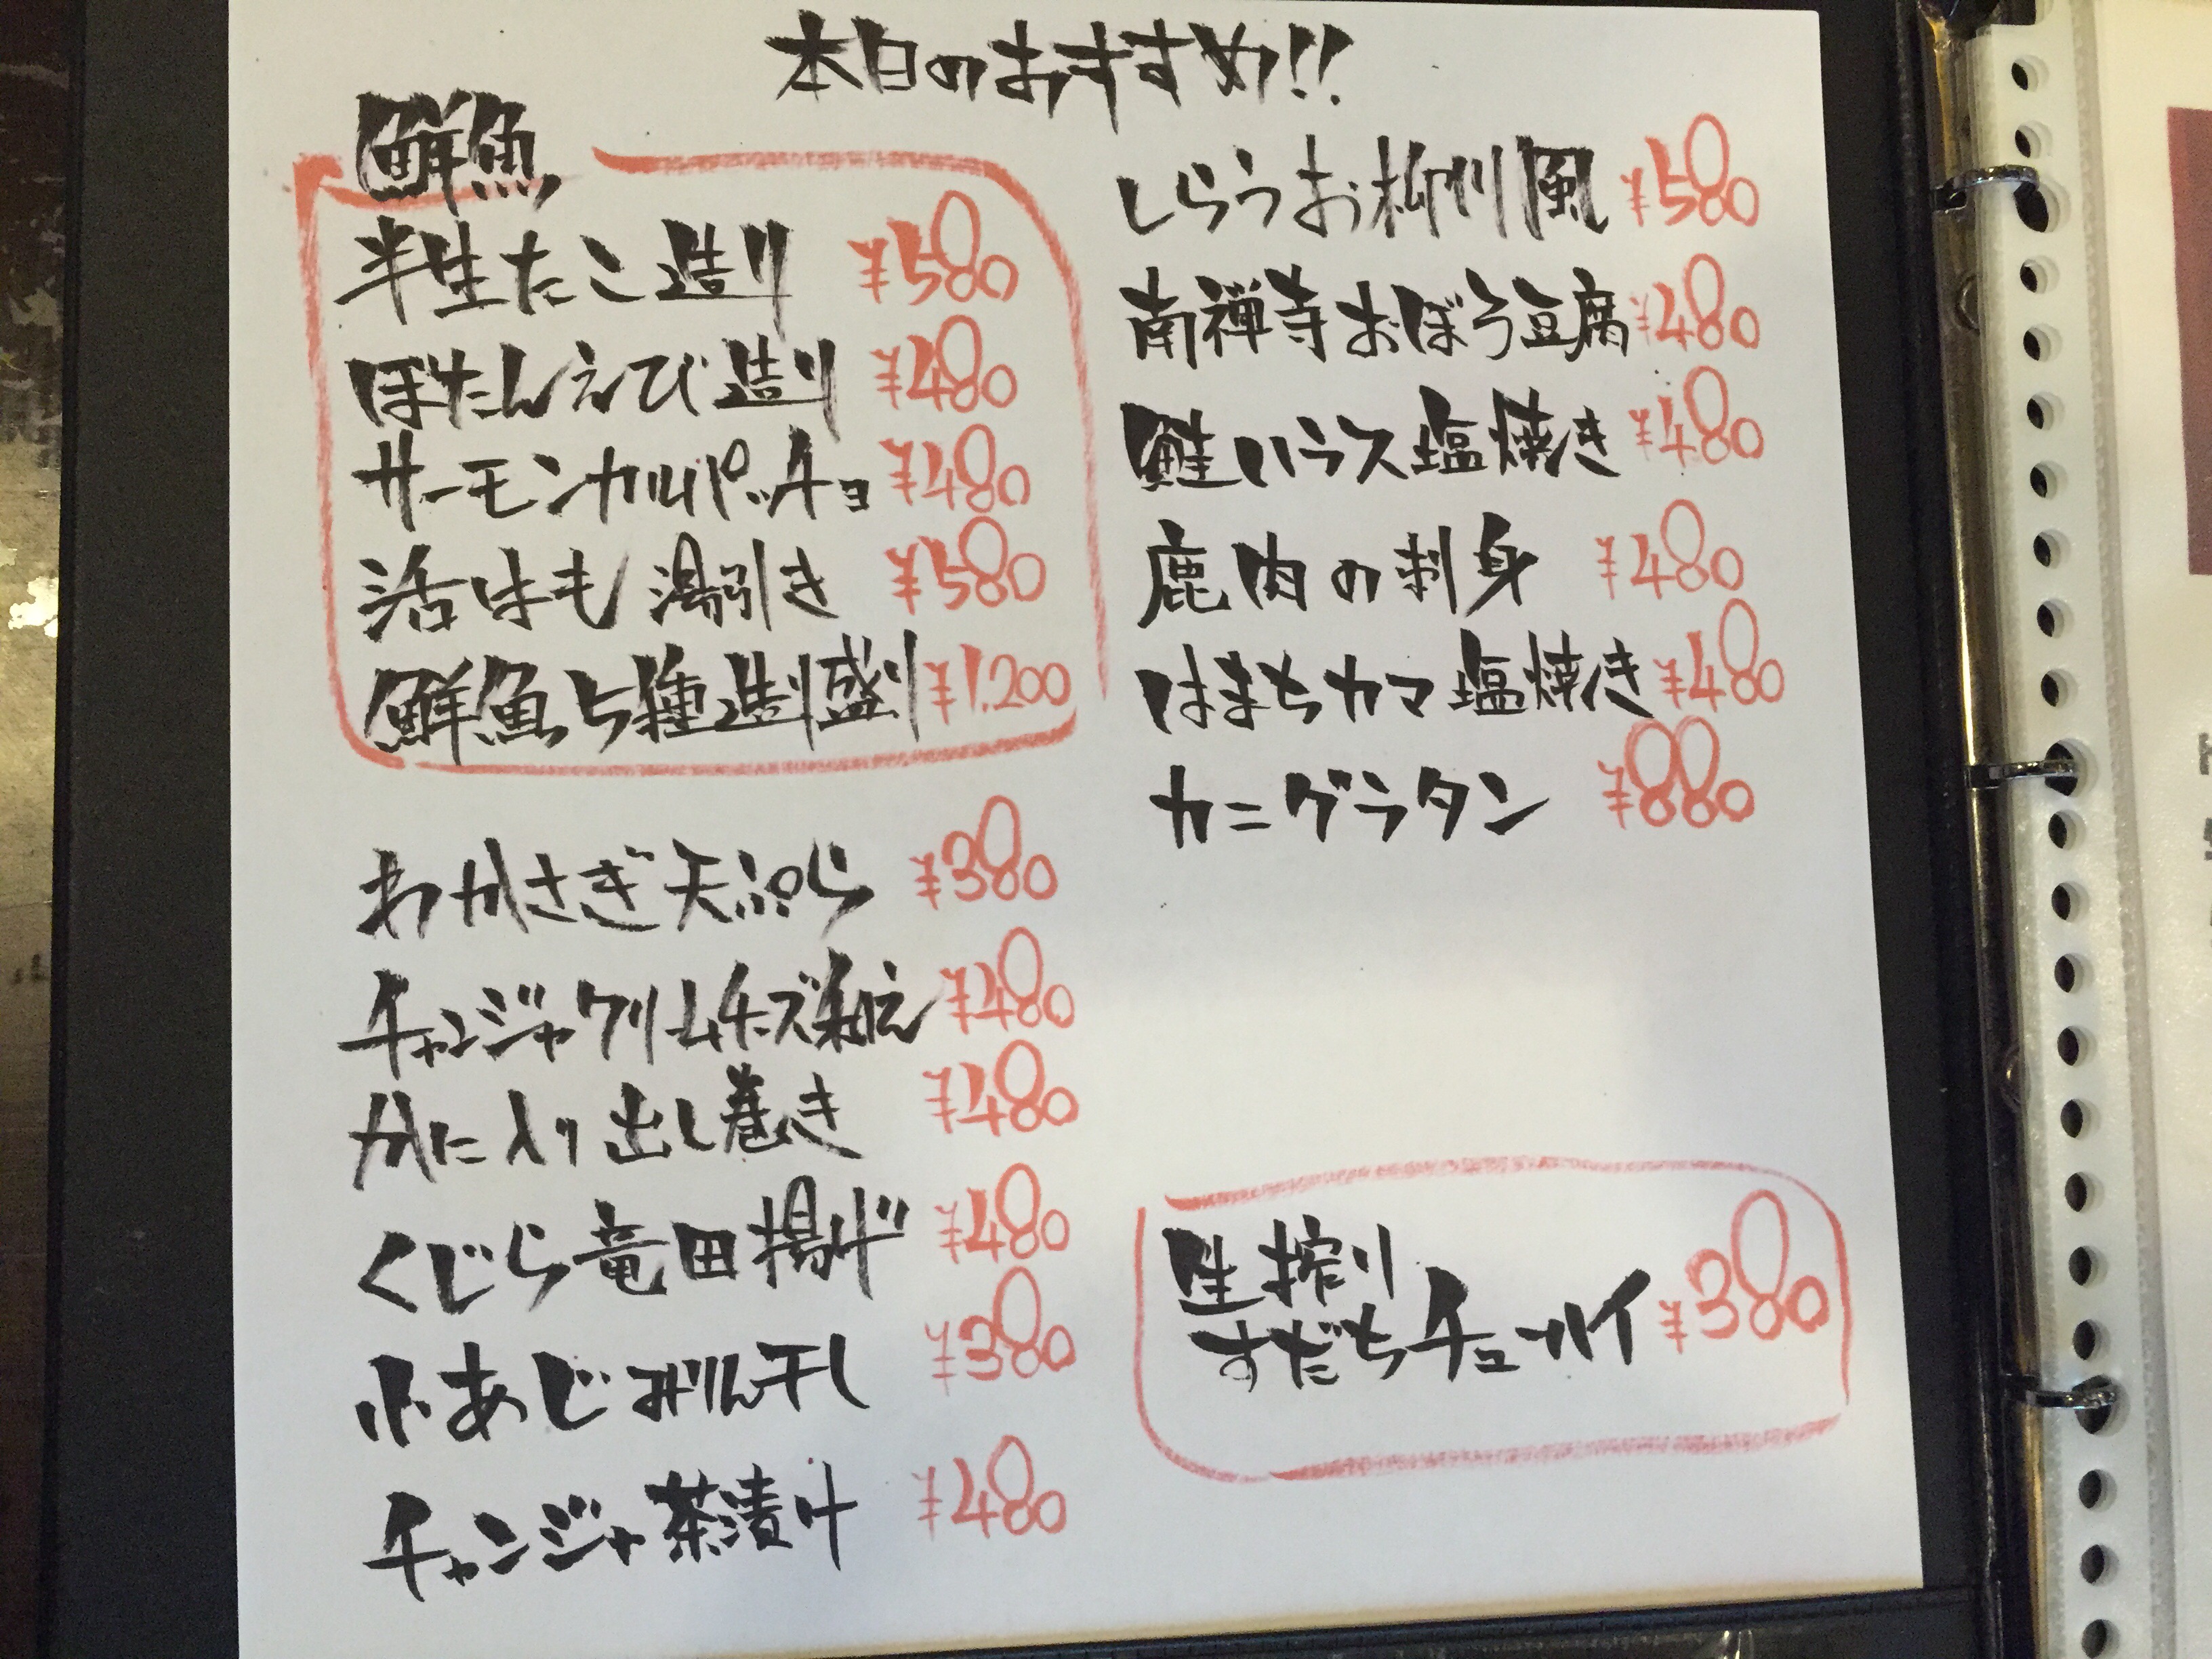 本日のおすすめ!!
鮮魚
半生たこ造り ¥580
ぼたんえび造り ¥480
サーモンカルパッチョ ¥480
活はも湯引き ¥580
鮮魚5種造り盛り ¥1.200
わかさぎ天ぷら ¥380
チャンジャクリームチーズ和え ¥480
かに入り出し巻き ¥480
くじら竜田揚げ ¥480
小あじみりん干し ¥380
チャンジャ茶漬け ¥480
しらうお柳川風 ¥580
南禅寺おぼろ豆腐 ¥480
鮭ハラス塩焼き ¥480
鹿肉の刺身 ¥480
はまちカマ塩焼き ¥480
カニグラタン ¥880
生搾り
すだちチューハイ ¥380